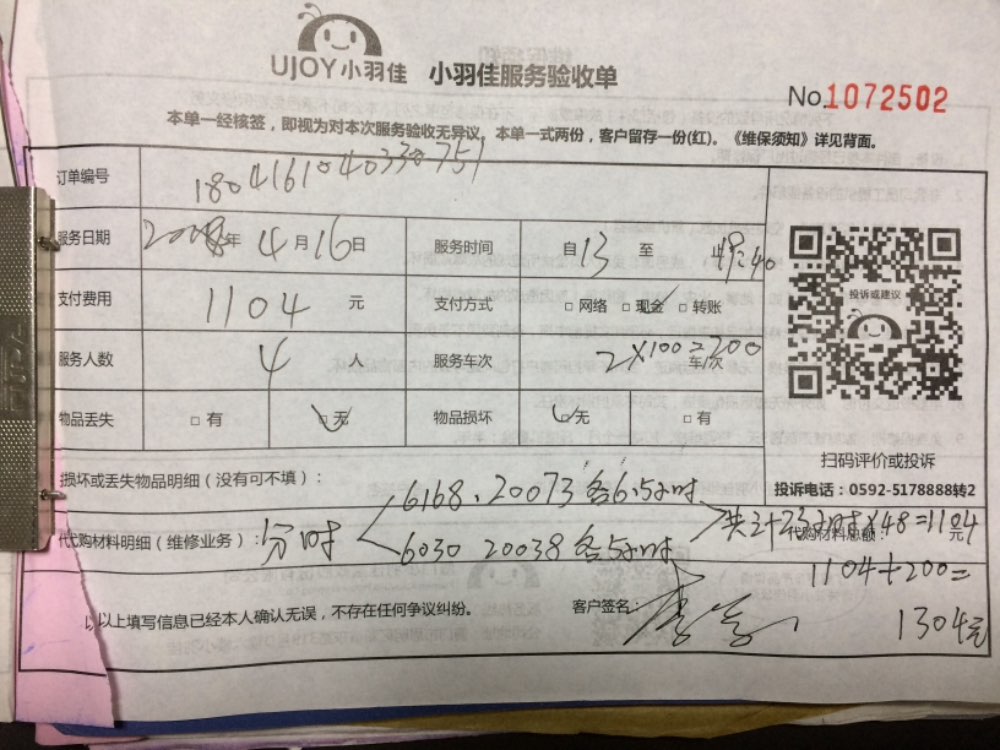 UJOY小羽佳 小羽佳服务验收单
No.1072502
本单一经核签，即视为对本次服务验收无异议。本单一式两份，客户留存一份(红)。《维保须知》详见背面。
订单编号 180416104033075​1
服务日期 年 4 月 16 日 服务时间 自 13 至
支付费用 1104 元 支付方式 □ 网络 □ 现金 □ 转账
服务人数 4 人 服务车次 2×100=200 车/次
物品丢失 □ 有 □ 无 物品损坏 □ 无 □ 有
投诉或建议
扫码评价或投诉
投诉电话：0592-5178888转2
损坏或丢失物品明细（没有可不填）：
6168、20073 各6.5小时
代购材料明细（维修业务）：分时
6030 20038 各5小时
共计23小时×48=1104
代购材料总额： 元
1104+200=
1304元
以上填写信息已经本人确认无误，不存在任何争议纠纷。 客户签名：